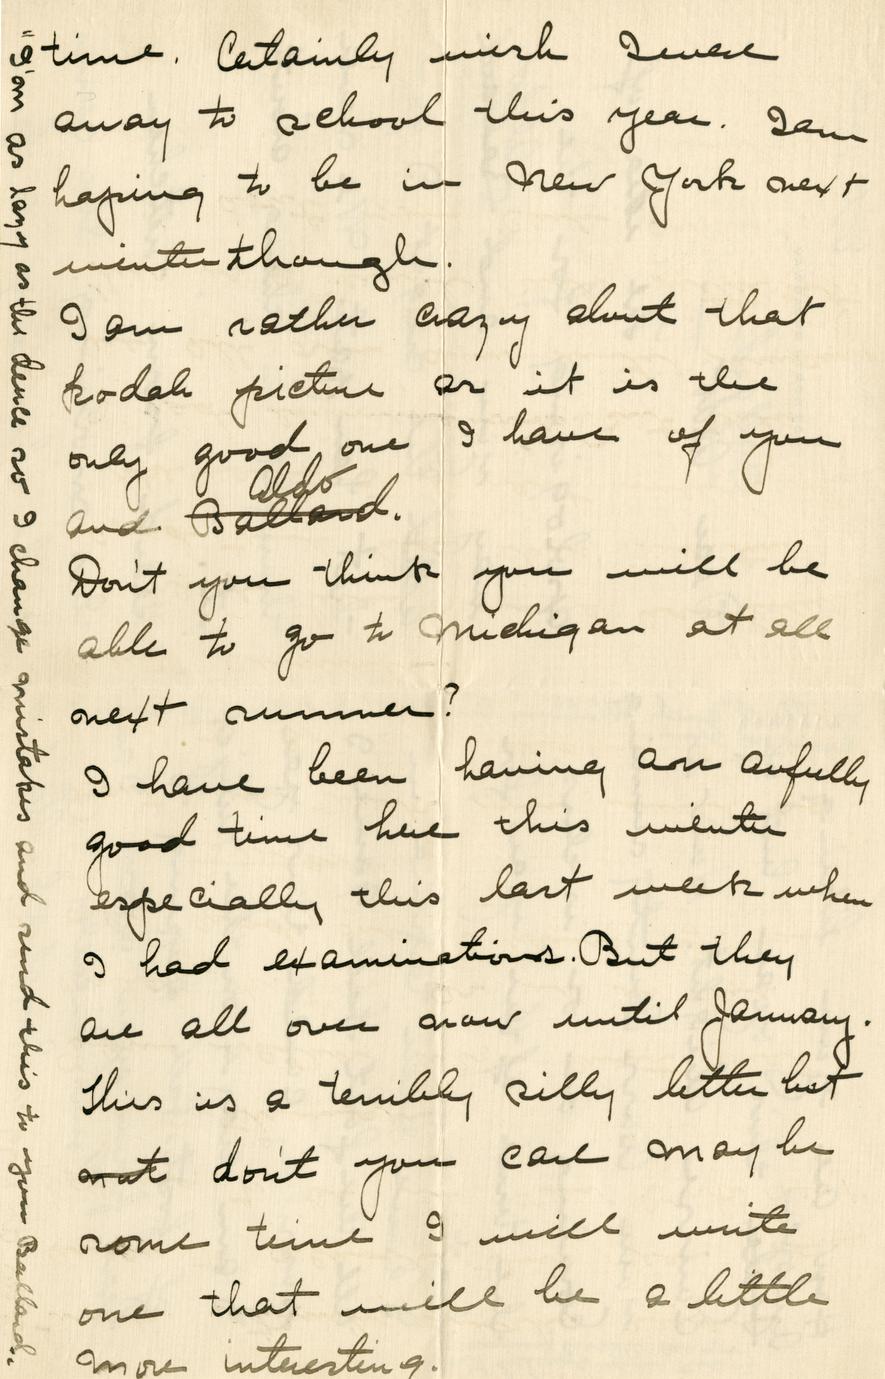 time. Certainly wish I were
away to school this year. I am
hoping to be in New York next
winter though.
I am rather crazy about that
kodak picture as it is the
only good one I have of you
Aldo
and Ballard.
Don't you think you will be
able to go to Michigan at all
next summer?
I have been having an awfully
good time here this winter
especially this last week when
I had examinations. But they
are all over now until January.
This is a terribly silly letter but
not don't you care may be
some time I will write
one that will be a little
more interesting.
"I'm as lazy as the dence so I change mistakes and send this to you Ballard.